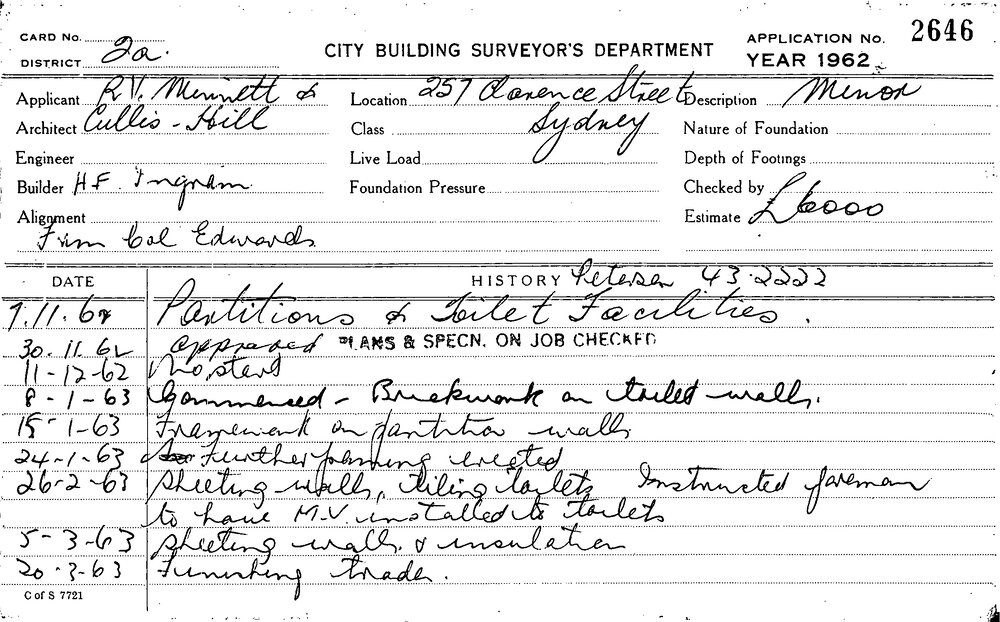 CARD No.
DISTRICT 2a.
CITY BUILDING SURVEYOR'S DEPARTMENT
APPLICATION No. 2646
YEAR 1962
Applicant R.V. Minnett &
Location 257 Clarence Street
Description Minor
Architect Cullis-Hill
Class Sydney
Nature of Foundation
Engineer
Live Load
Depth of Footings
Builder H.F. Ingram
Foundation Pressure
Checked by
Alignment
Estimate £6000
From Col Edwards
DATE
HISTORY Petersen 43.2222
7.11.62 Partitions & Toilet Facilities.
30.11.62 approved PLANS & SPECN. ON JOB CHECKED
11-12-62 No start
8-1-63 Commenced - Brickwork on toilet walls.
15-1-63 Framework on partition walls
24-1-63 Further framing erected
26-2-63 Sheeting walls, tiling toilets Instructed foreman
to have M.V. installed to toilets
5-3-63 Sheeting walls & insulation
20-3-63 Finishing trades.
C of S 7721